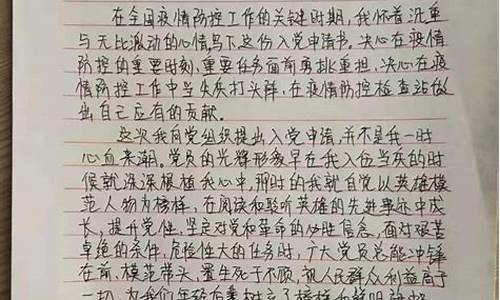 在全国疫情防控工作的关键时期,我怀着沉重
与无比激动的心情写下这份入党申请书。决心在疫情
防控的重要时刻、重要任务面前勇挑重担,决心在疫
情防控工作中当先疾打头阵,在疫情防控检查站做
出自己应有的贡献。
这次我向党组织提出入党申请,并不是我一时
心血来潮。党员的光辉形象早在我入伍当兵的时
候就深深根植我心中,那时的我就自觉以英雄模
范人物为榜样,在阅读和聆听英雄的先进事迹中成
长,提升党性,坚定对党和革命的必胜信念,面对艰苦
卓绝的条件、危险性大的任务时,广大党员总能冲锋
在前、模范带头、置生死于不顾,视人民群众利益高于
一切,为我们年轻